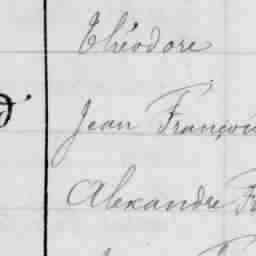 Théodore
Jean François
Alexandre